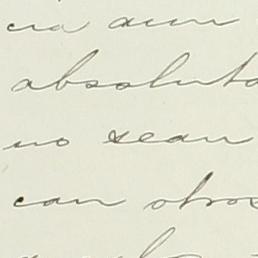 cia aun
absoluta
no sean
can otros